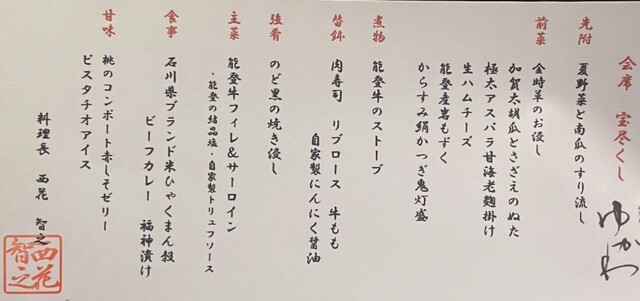 会席 宝尽くし
ゆかわ
先附
夏野菜と南瓜のすり流し
前菜
金時草のお浸し
加賀太胡瓜とさざえのぬた
極太アスパラ甘海老麹掛け
生ハムチーズ
能登産岩もずく
からすみ絹かつぎ鬼灯盛
煮物
能登牛のストーブ
替鉢
肉寿司 リブロース 牛もも
自家製にんにく醤油
強肴
のど黒の焼き浸し
主菜
能登牛フィレ&サーロイン
・能登の結晶塩・自家製トリュフソース
食事
石川県ブランド米ひゃくまん穀
ビーフカレー 福神漬け
甘味
桃のコンポート赤しそゼリー
ピスタチオアイス
料理長 西花 智之
西花
智之